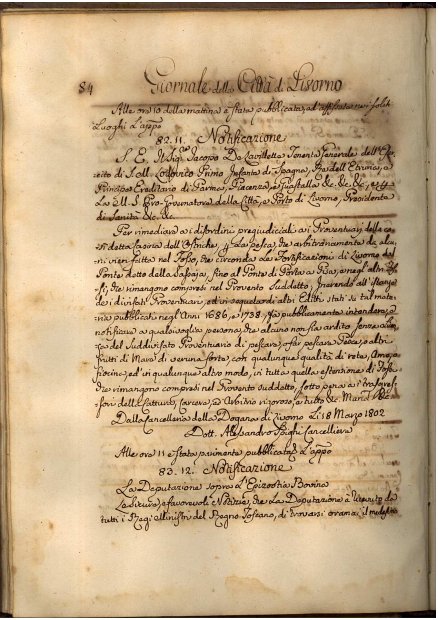 84 Giornale della Città di Livorno
Alle ore 10 della mattina è stata pubblicata, ed affissa nei soliti
Luoghi L'appo
82. 11. Notificazione
S. E. Il Sig.r Jacopo De Lavillette Tenente Generale dell'Eser
cito di S. M. Lodovico Primo Infante di Spagna, Re dell'Etruria, e
Principe Ereditario di Parma, Piacenza, e Guastalla &c. &c. &c., e p
La M. S. Pro-Governatore della Città, e Porto di Livorno, Presidente
di Sanità &c. &c.
Per rimediare ai disordini pregiudiciali ai Proventuari della
detta per la pesca, che arbitrariamente da alcu
ni vien fatta nel Fosso, che circonda le Fortificazioni di Livorno dal
Ponte detto della Sassaja, fino al Ponte di Porta a Pisa, e negl'altri Fos
si, che rimangono compresi nel Provento Suddetto, Inerendo all'Istanze
de i divisati Proventuari, ed in sequela di altri Editti stati su tal mate
ria pubblicati negl'Anni 1686, e 1738, fa pubblicamente intendere, e
notificare a qualsivoglia persona, che alcuno non sia ardito senza licen
za del Suddivisato Proventuario di pescare, o far pescare Pesce, o altri
frutti di Mare di veruna sorte, con qualunque qualità di rete, Amo,
fiocine, ed in qualunque altro modo, in tutta quella estensione di Fossi,
che rimangono compresi nel Provento suddetto, sotto pena ai trasgres
sori della Cattura, Carcere, ed Arbitrio rigoroso, e tutto &c. Mand. &c.
Dalla Cancelleria della Dogana di Livorno Li 18 Marzo 1802
Dott. Alessandro Cancelliere
Alle ore 11 è stata parimente pubblicata L'appo
83. 12. Notificazione
La Deputazione sopra L'Epizootia Bovina
Le Sicure, e favorevoli Notizie, che La Deputazione à ricevute da
tutti i Regi Ministri del Regno Toscano, di trovarsi oramai il medesimo